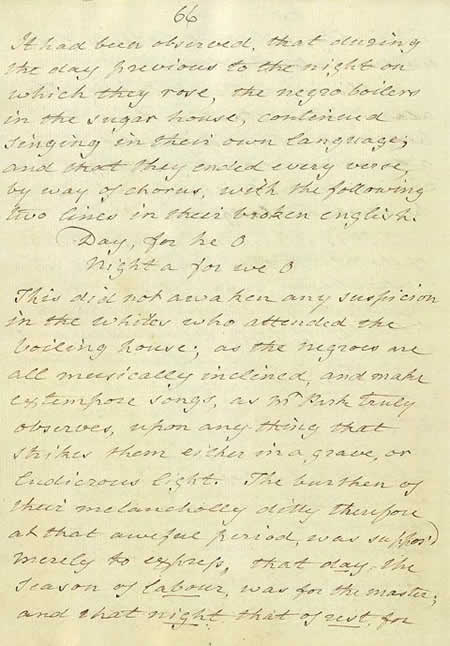 66
It had been observed, that during
the day previous to the night on
which they rose, the negro boilers
in the sugar house, continued
singing in their own language;
and that they ended every verse,
by way of chorus, with the following
two lines in their broken english.
Day, for he O
Night a for we O
This did not awaken any suspicion
in the whites who attended the
boiling house; as the negroes are
all musically inclined, and make
extempore songs, as Mr Park truly
observes, upon any thing that
strikes them either in a grave, or
ludicrous light. The burthen of
their melancholly ditty therefore
at that aweful period, was suppos'd
merely to express, that day, the
season of labour, was for the master;
and that night, that of rest, for